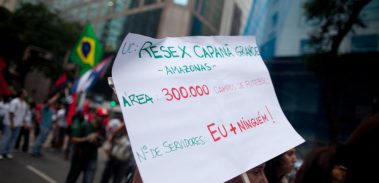 UC: RESEX CAPANÃ GRANDE
- AMAZONAS -
ÁREA: 300.000 CAMPOS DE FUTEBOL
Nº DE SERVIDORES: EU + NINGUÉM!